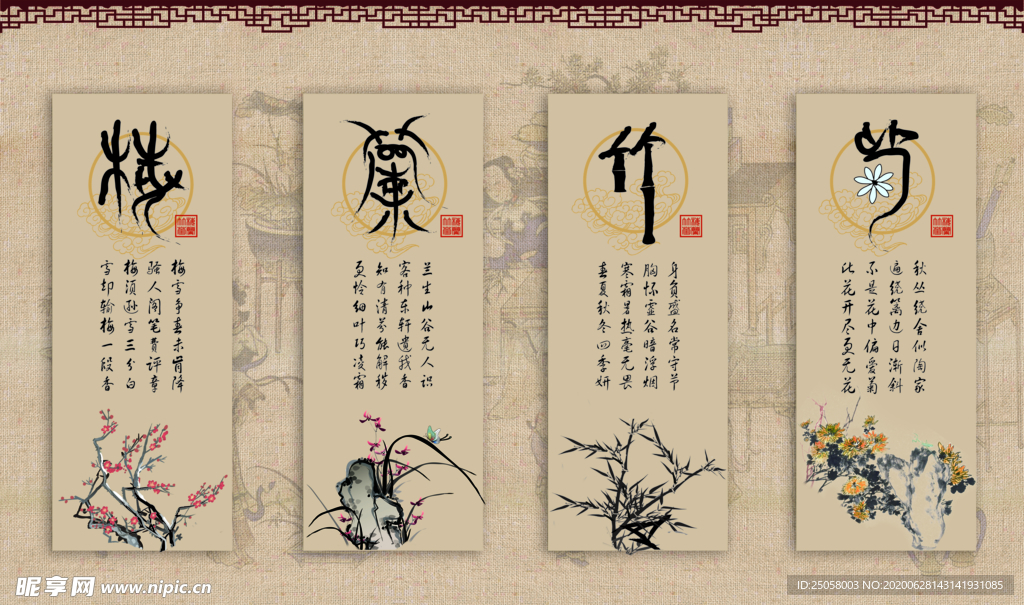 梅
梅雪争春未肯降
骚人阁笔费评章
梅须逊雪三分白
雪却输梅一段香
蘭
兰生山谷无人识
客种东轩遗我香
知有清芬能解秽
更怜细叶巧凌霜
竹
身负盛名常守节
胸怀虚谷暗浮烟
寒霜暑热毫无畏
春夏秋冬四季妍
菊
秋丛绕舍似陶家
遍绕篱边日渐斜
不是花中偏爱菊
此花开尽更无花
昵享网 www.nipic.cn
ID:25058003 NO:20200628143141931085